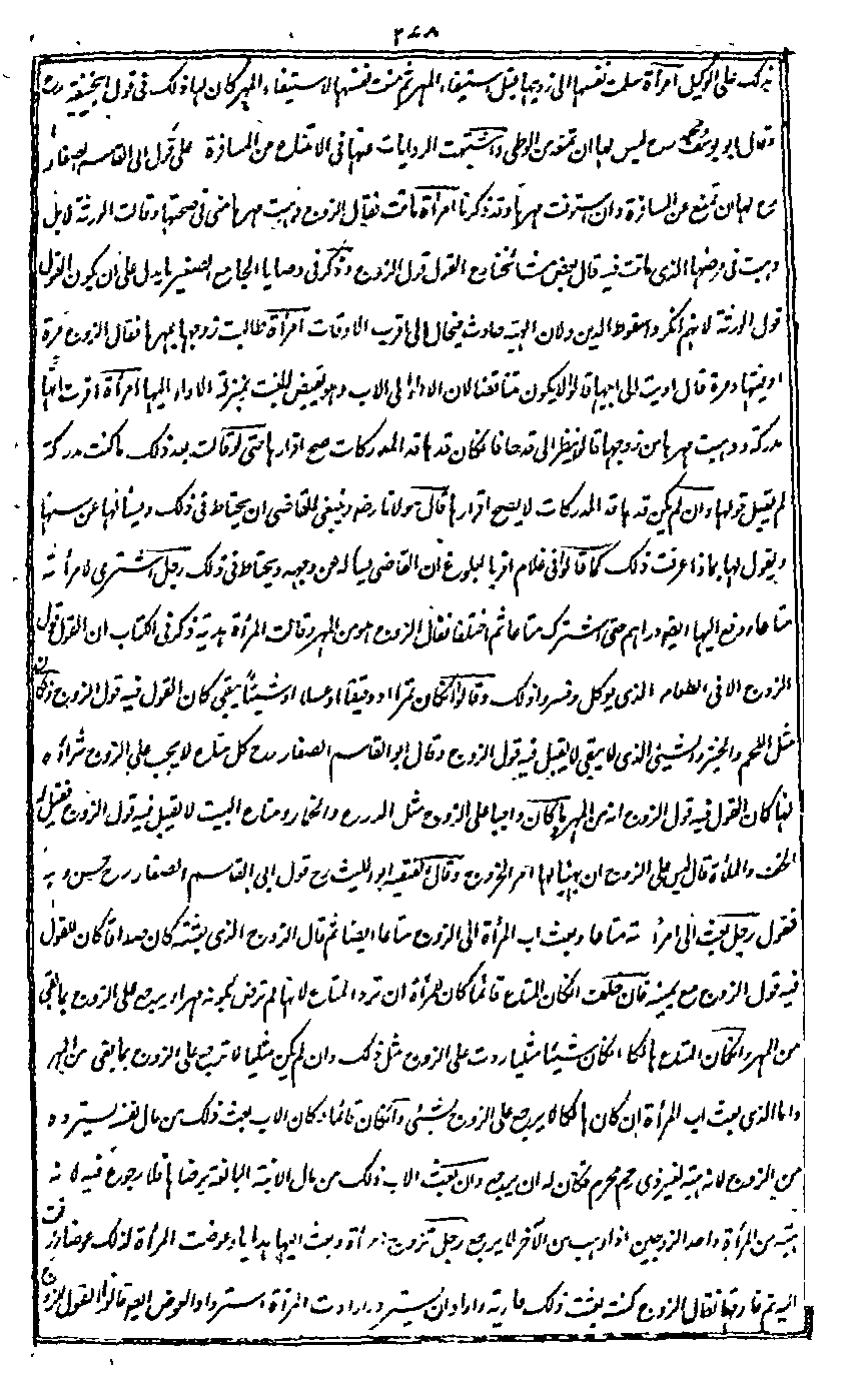 ٢٤٨
ذلك على الوكيل امرأة سلمت نفسها الى زوجها قبل استيفاء المهر ثم منعت نفسها لاستيفاء المهر كان لها ذلك فى قول ابيحنيفة رح
وقال ابو يوسف ومحمد رح ليس لها ان تمنعه من الوطى واشتبهت الروايات عنهما فى الامتناع من المسافرة على قول ابى القاسم الصفار
رح لها ان تمنع عن المسافرة وان استوفت مهرها وقد ذكرنا امرأة ماتت فقال الزوج وهبت مهرها منى فى صحتها وقالت الورثة لا بل
وهبت فى مرضها الذى ماتت فيه قال بعض مشائخنا رح القول قول الزوج وذكر فى وصايا الجامع الصغير ما يدل على ان يكون القول
قول الورثة لانهم انكروا سقوط الدين ولان الهبة حادث فيحال الى اقرب الاوقات امرأة طالبت زوجها بمهرها فقال الزوج مرة
اوفيتها ومرة قال اديت الى ابيها قالوا لا يكون مناقضا لان الاداء الى الاب وهو يقبض للبنت بمنزلة الاداء اليها امرأة اقرت انها
مدركة ووهبت مهرها من زوجها قالوا ينظر الى قدها فان كان قدها قد المدركات صح اقرارها حتى لو قالت بعد ذلك ما كنت مدركة
لم يقبل قولها وان لم يكن قدها قد المدركات لا يصح اقرارها قال مولانا رضه وينبغى للقاضى ان يحتاط فى ذلك ويسألها عن سنها
ويقول لها بماذا عرفت ذلك كما قالوا فى غلام اقر بالبلوغ ان القاضى يسأله عن وجهه ويحتاط فى ذلك رجل اشترى لامرأته
متاعا ودفع اليها ايضا دراهم حتى اشترت متاعا ثم اختلفا فقال الزوج هو من المهر وقالت المرأة هدية ذكر فى الكتاب ان القول قول
الزوج الا فى الطعام الذى يوكل وفسروا ذلك وقالوا ان كان تمرا او دقيقا او عسلا او شيئا يبقى كان القول فيه قول الزوج وان كان
مثل اللحم والخبز والشيئ الذى لا يبقى لا يقبل فيه قول الزوج وقال ابو القاسم الصفار رح كل متاع لا يجب على الزوج شراؤه
لها كان القول فيه قول الزوج انه من المهر وما كان واجبا على الزوج مثل الدرع والخمار ومتاع البيت لا يقبل فيه قول الزوج فقيل له
الخف والملاءة قال ليس على الزوج ان يهيئ لها امر الخروج وقال الفقيه ابو الليث رح قول ابى القاسم الصفار رح حسن وبه
نقول رجل بعث الى امرأته متاعا وبعث اب المرأة الى الزوج متاعا ايضا ثم قال الزوج الذى بعثته كان صداقا كان القول
فيه قول الزوج مع يمينه فان حلف ان كان المتاع قائما كان للمرأة ان ترد المتاع لانها لم ترض بكونه مهرا ويرجع على الزوج بما بقى
من المهر وان كان المتاع هالكا ان كان شيئا مثليا ردت على الزوج مثل ذلك وان لم يكن مثليا لا ترجع على الزوج بما بقى من المهر
واما الذى بعث اب المرأة ان كان هالكا لا يرجع على الزوج بشيئ وان كان قائما وكان الاب بعث ذلك من مال نفسه يسترده
من الزوج لانه هبة لغير ذى رحم محرم فكان له ان يرجع وان بعث الاب ذلك من مال الابنة البالغة برضاها فلا رجوع فيه لانه
هبة من المرأة واحد الزوجين اذا وهب من الآخر لا يرجع رجل تزوج امرأة وبعث اليها بهدايا وعوضت المرأة لذلك عوضا وزفت
اليه ثم فارقها فقال الزوج كنت بعثت ذلك عارية واراد ان يسترد وارادت المرأة استرداد العوض ايضا قالوا القول قول الزوج